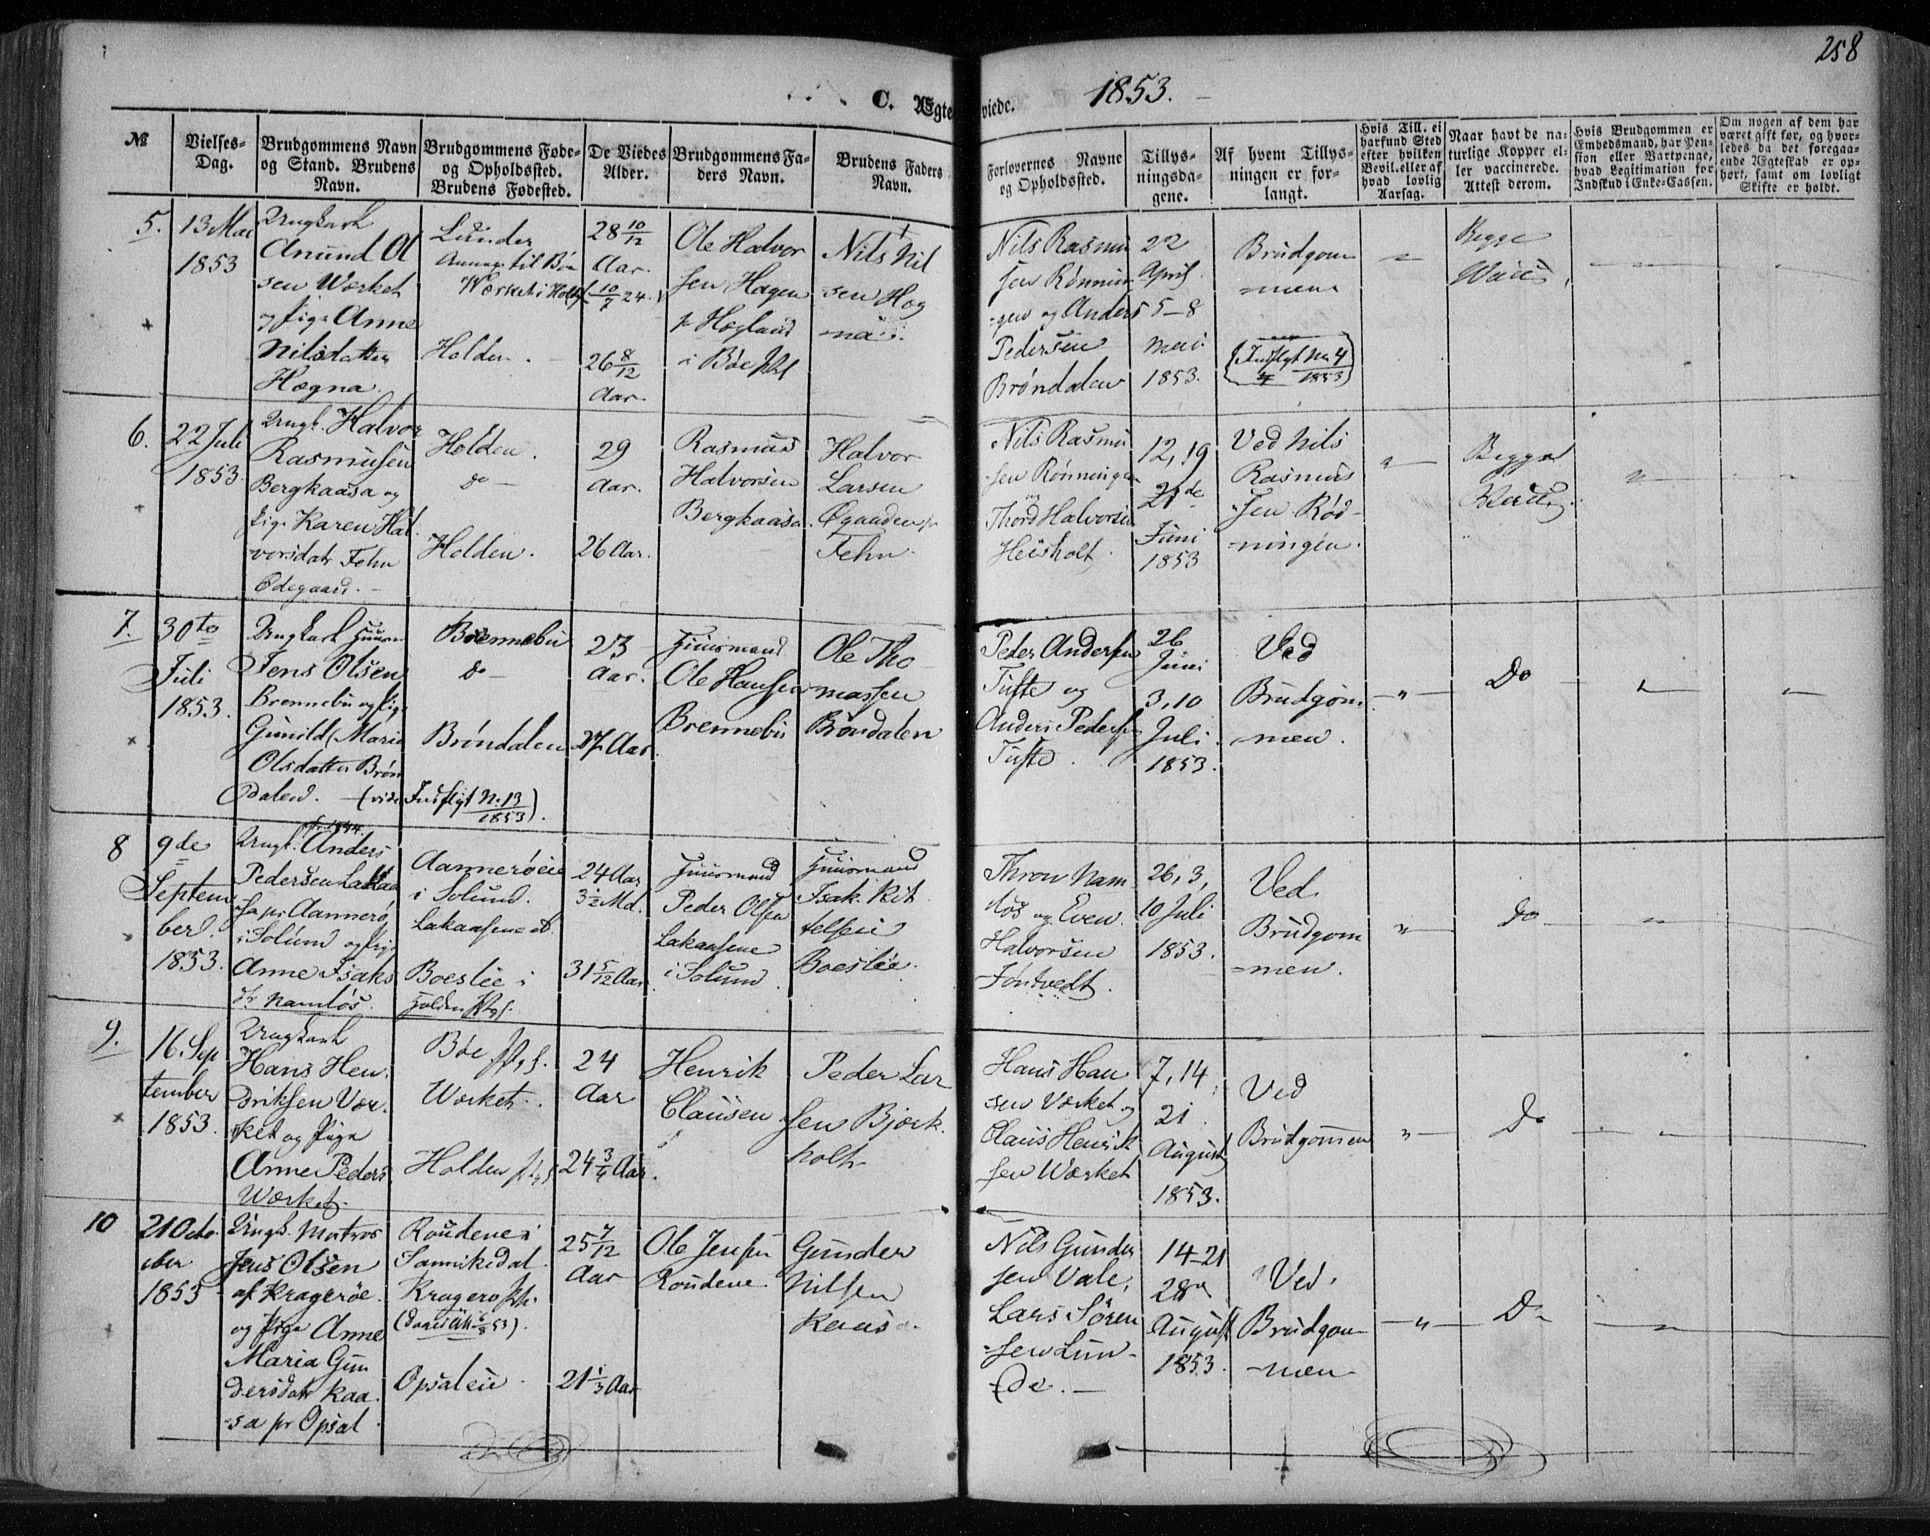 258
C. Ægteviede. 1853.
№
Vielses-
Dag.
Brudgommens Navn
og Stand. Brudens
Navn.
Brudgommens Føde-
og Opholdssted.
Brudens Fødested.
De Viedes
Alder.
Brudgommens Fa-
ders Navn.
Brudens Faders
Navn.
Forlovernes Navne
og Opholdssted.
Tillys-
ningsda-
gene.
Af hvem Tillys-
ningen er for-
langt.
Hvis Till. ei
harfund Sted
efter hvilken
Bevil. eller af
hvad lovlig
Aarsag.
Naar havt de na-
turlige Kopper el-
ler vaccinerede.
Attest derom.
Hvis Brudgommen er
Embedsmand, har Pen-
sion eller Vartpenge,
hvad Legitimation for
Indskud i Enke-Cassen.
Om nogen af dem har
været gift før, og hvor-
ledes da det foregaa-
ende Ægteskab er op-
hørt, samt om lovligt
Skifte er holdt.
5.
13 Mai
1853
Ungkarl
Anund Ol
sen Værket
og Pige Anne
Nilsdatter
Hægna
Lunder
Værket i Hold
Holden.
28 10/12
Aar.
26 8/12
Aar.
Ole Halvor
sen Hagen
p Hægland
i Böe
Nils Nil
sen Hæg
na.
Nils Rasmu
sen Rønnin
gen og Anders
Pedersen
Brøndalen
22
April
5-8
Mai
1853.
Brudgom
men
1853
Begge
6.
22 Juli
1853
Ungk. Halvor
Rasmusen
Bergkaasa og
Pige Karen Hal
vorsdatr Fehn
Ødegaard.
Holden.
do
Holden.
29
Aar.
26 Aar.
Rasmus
Halvorsen
Bergkaasa
Halvor
Larsen
Øgaarden p
Fehn.
Nils Rasmu
sen Rønningen
og
Thord Halvorsen
Heisholt.
12, 19
21de
Juni
1853
Ved Nils
Rasmus
sen Rød-
ningen.
Begge
7.
30te
Juli
1853.
Ungkarl Huusm
Jens Olsen
Brennebu og Pige
Gunild Maria
Olsdatter Brøn
dalen. (vide Indflgt N. 13
1853).
Brennebu
do
Brøndalen
23
Aar.
27 Aar.
Huusmand
Ole Hansen
Brennebu
Ole Tho
massen
Brøndalen
Peder Andersen
Tufte og
Anders Pedersen
Tufte.
26
Juni
3, 10
Juli
1853.
Ved
Brudgom-
men.
Do
8
9de
Septem
ber.
1853.
Ungk. Anders
Pedersen Lakaa
sa pr Aannerø
i Solum og Pige
Anne Isaks
dr Namløs.
Aannerøeie
i Solund.
Lakaasene
Boeslie i
Holden
24 Aar
3½ Md.
31 5/12 Aar
Huusmand
Peder Olsen
Lakaasene
i Solund.
Huusmand
Isak Kit
telsen
Boeslie.
Thron Nam
løs og Even
Halvorsen
Jøntvedt.
26, 3,
10 Juli
1853.
Ved
Brudgom
men.
do
9.
16. Sep
tember
1853.
Ungkarl
Hans Hen
driksen Vær
ket og Pige
Anne Peders
Værket.
Böe
Værket.
Holden
24
Aar
24 3/4 Aar.
Henrik
Clausen
Peder Lar
sen Bjerk
holt
Hans Han
sen Værket og
Claus Henrik
sen Værket
7, 14
21
August
1853.
Ved
Brudgommen
Do
10
21 Octo
ber
1853
Ungk. Matros
Jens Olsen
af Kragerøe
og Pige Anne
Maria Gun
dersdatr Kaa
sa pr Opsal
Roudene i
Sannikedal
Kragerø
Opsaleie
25 7/12
Aar
21 1/3 Aar
Ole Jensen
Roudene
Gunder
Nilsen
Kaas
Nils Gunder
sen Vale,
Lars Søren
sen Lun-
de.
14-21
28
August
1853.
Ved
Brudgom
men
Do